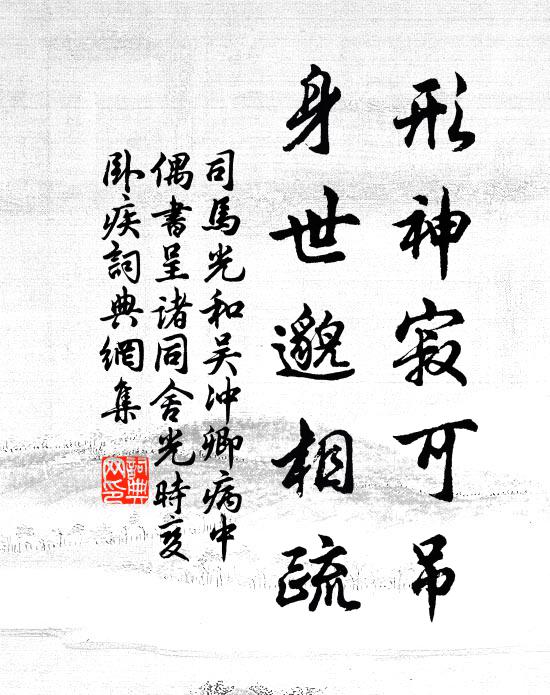 形神寂可吊
身世邈相疏
司馬光和吴沖卿病中
偶書呈諸同舍光時亦
卧疾詞典網集
詞典
网印